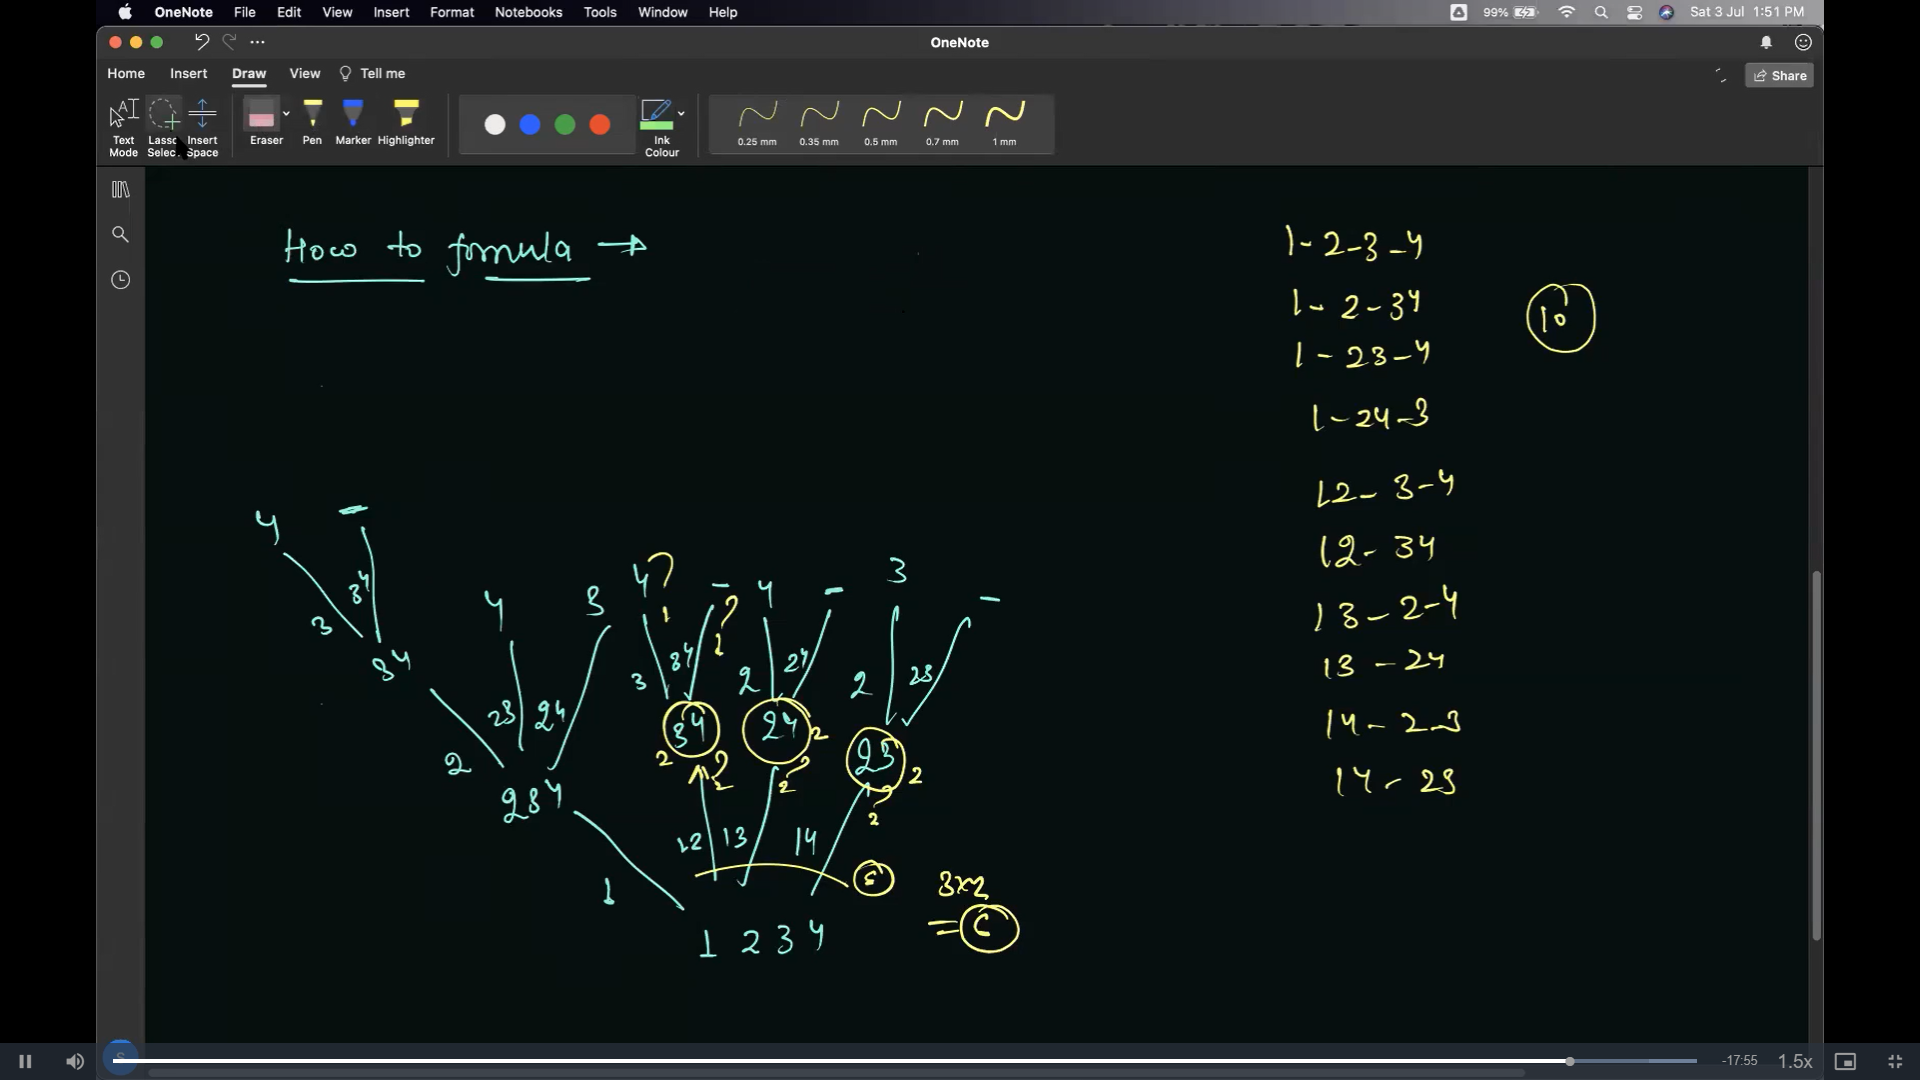 OneNote File Edit View Insert Format Notebooks Tools Window Help 99% Sat 3 Jul 1:51 PM
OneNote
Home Insert Draw View Tell me Share
Text Mode Lasso Select Insert Space Eraser Pen Marker Highlighter Ink Colour 0.25 mm 0.35 mm 0.5 mm 0.7 mm 1 mm
How to formula →
1-2-3-4
1-2-34
10
1-23-4
1-24-3
12-3-4
12-34
13-2-4
13-24
14-2-3
14-23
4 -
4 3 4 - 4 - 3 -
1 1
3 34
34
23 24 3 34 2 24 2 23
2
34 24 23
2 2 2
2 2 2
234
12 13 14
1
3x2
= 6
1 2 3 4
-17:55 1.5x